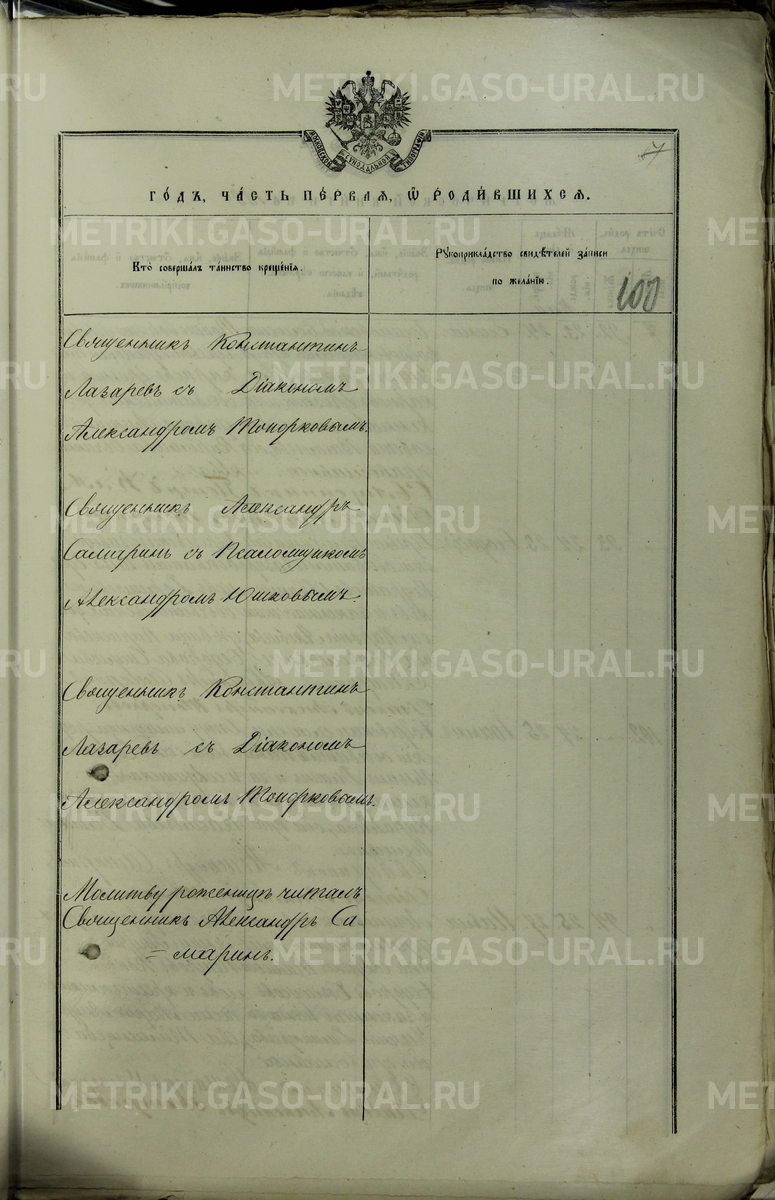 МОСКОВСКОЙ СѴНОДАЛЬНОЙ ТИПОГРАФІИ
ГО́ДЪ, ЧА́СТЬ ПЕ́РВАЯ, Ѡ҆ РОДИ́ВШИХСЯ.
Кто̀ соверша́лъ та́инство креще́нїѧ.
Рꙋкоприкла́дство свидѣ́телей за́писи
по жела́нїю.
100
Священникъ Константинъ
Лазаревъ съ Діакономъ
Александромъ Топорковымъ.
Священникъ Александръ
Самаринъ съ Псаломщикомъ
Александромъ Юшковымъ.
Священникъ Константинъ
Лазаревъ съ Діакономъ
Александромъ Топорковымъ.
Молитву роженицѣ читалъ
Священникъ Александръ Са
=маринъ.
METRIKI.GASO-URAL.RU